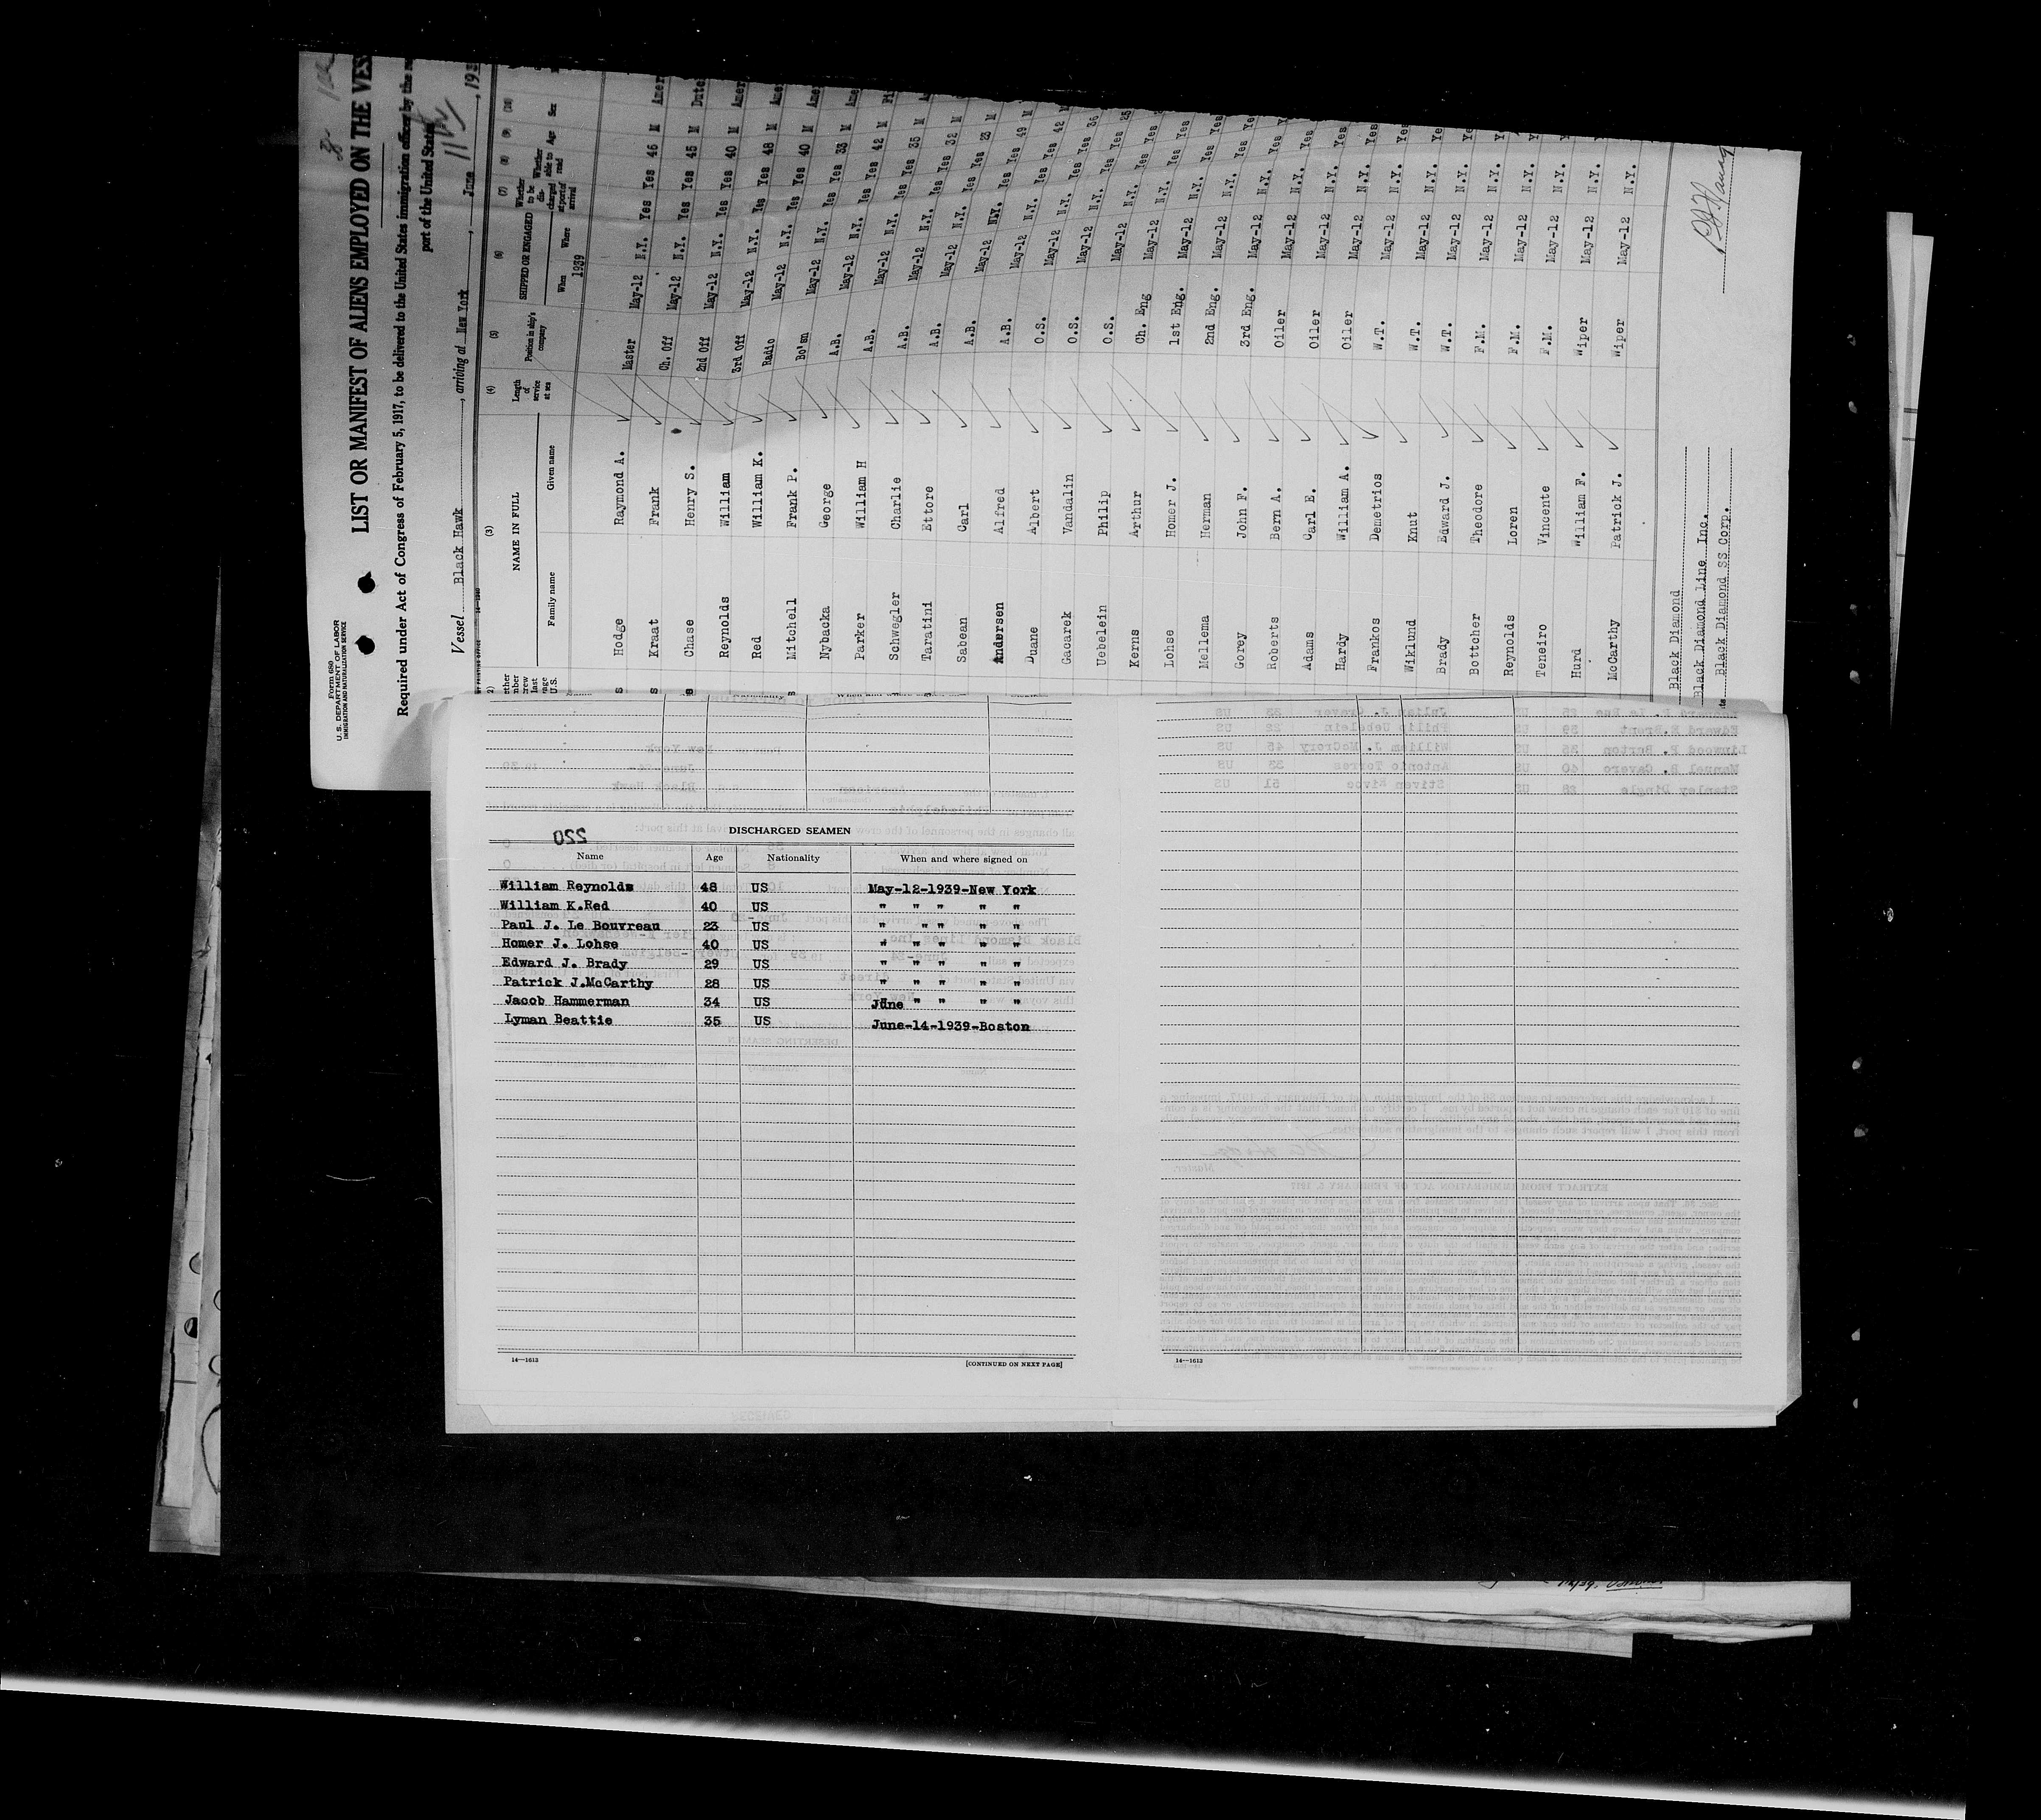 Form 680
U. S. DEPARTMENT OF LABOR
IMMIGRATION AND NATURALIZATION SERVICE
LIST OR MANIFEST OF ALIENS EMPLOYED ON THE VES
Required under Act of Congress of February 5, 1917, to be delivered to the United States immigration officer by the
port of the United States
Vessel Black Hawk, arriving at New York, June 11th, 193
(3) (4) (5) (6) (7) (8) (9) (10)
NAME IN FULL
Family name Given name
Length of service at sea
Position in ship's company
SHIPPED OR ENGAGED
When Where
Whether to be discharged at port of arrival
Whether able to read
Age Sex
1939
Hodge Raymond A. Master May-12 N.Y. Yes Yes 46 M Amer
Kraat Frank Ch. Off May-12 N.Y. Yes Yes 45 M Dutc
Chase Henry S. 2nd Off May-12 N.Y. Yes Yes 40 M Amer
Reynolds William 3rd Off May-12 N.Y. Yes Yes 48 M Ame
Red William K. Radio May-12 N.Y. Yes Yes 40 M Ame
Mitchell Frank P. Bo'sn May-12 N.Y. Yes Yes 33 M Ame
Nybacka George A.B. May-12 N.Y. Yes Yes 42 M Fi
Parker William H A.B. May-12 N.Y. Yes Yes 35 M A
Schwegler Charlie A.B. May-12 N.Y. Yes Yes 32 M
Taratini Ettore A.B. May-12 N.Y. Yes Yes 23 M
Sabean Carl A.B. May-12 N.Y. Yes Yes 49 M
Andersen Alfred A.B. May-12 N.Y. Yes Yes 42
Duane Albert O.S. May-12 N.Y. Yes Yes 36
Gacarek Vandalin O.S. May-12 N.Y. Yes Yes 25
Uebelein Philip O.S. May-12 N.Y. Yes Yes
Kerns Arthur Ch. Eng May-12 N.Y. Yes Yes
Lohse Homer J. 1st Eng. May-12 N.Y. Yes
Mellema Herman 2nd Eng. May-12 N.Y. Yes
Gorey John F. 3rd Eng. May-12 N.Y. Yes
Roberts Bern A. Oiler May-12 N.Y. Yes
Adams Carl E. Oiler May-12 N.Y. Yes
Hardy William A. Oiler May-12 N.Y. Yes
Frankos Demetrios W.T. May-12 N.Y. Yes
Wiklund Knut W.T. May-12 N.Y. Ye
Brady Edward J. W.T. May-12 N.Y. Ye
Bottcher Theodore F.M. May-12 N.Y. Ye
Reynolds Loren F.M. May-12 N.Y.
Teneiro Vincente F.M. May-12 N.Y.
Hurd William F. Wiper May-12 N.Y.
McCarthy Patrick J. Wiper May-12 N.Y.
Black Diamond
Black Diamond Line Inc.
Black Diamond SS Corp.
220
DISCHARGED SEAMEN
Name Age Nationality When and where signed on
William Reynolds 48 US May-12-1939-New York
William K.Red 40 US " " " " "
Paul J. Le Bouvreau 23 US " " " " "
Homer J. Lohse 40 US " " " " "
Edward J. Brady 29 US " " " " "
Patrick J.McCarthy 28 US " " " " "
Jacob Hammerman 34 US June " " " "
Lyman Beattie 35 US June-14-1939-Boston
14—1613 [CONTINUED ON NEXT PAGE]
14—1613